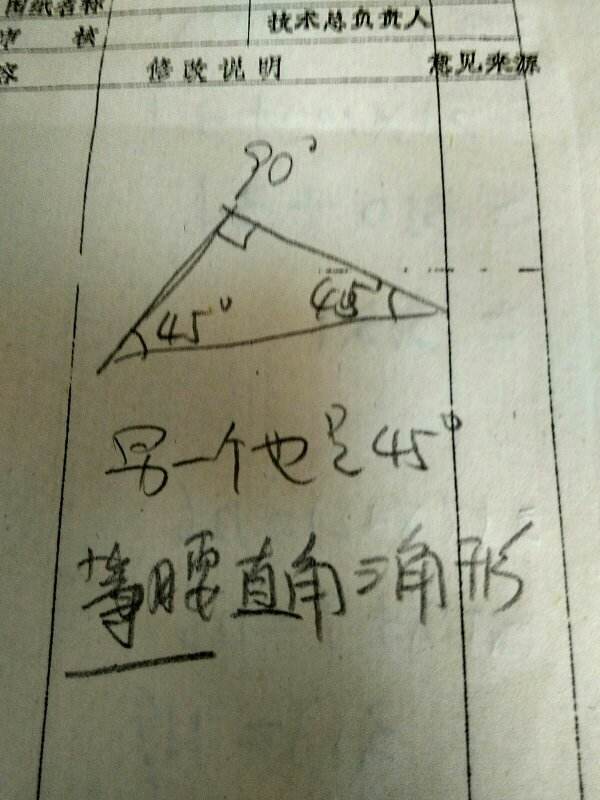 图纸名称
审 核
技术总负责人
容
修改说明
意见来源
90°
45°
45°
另一个也是45°
等腰直角三角形